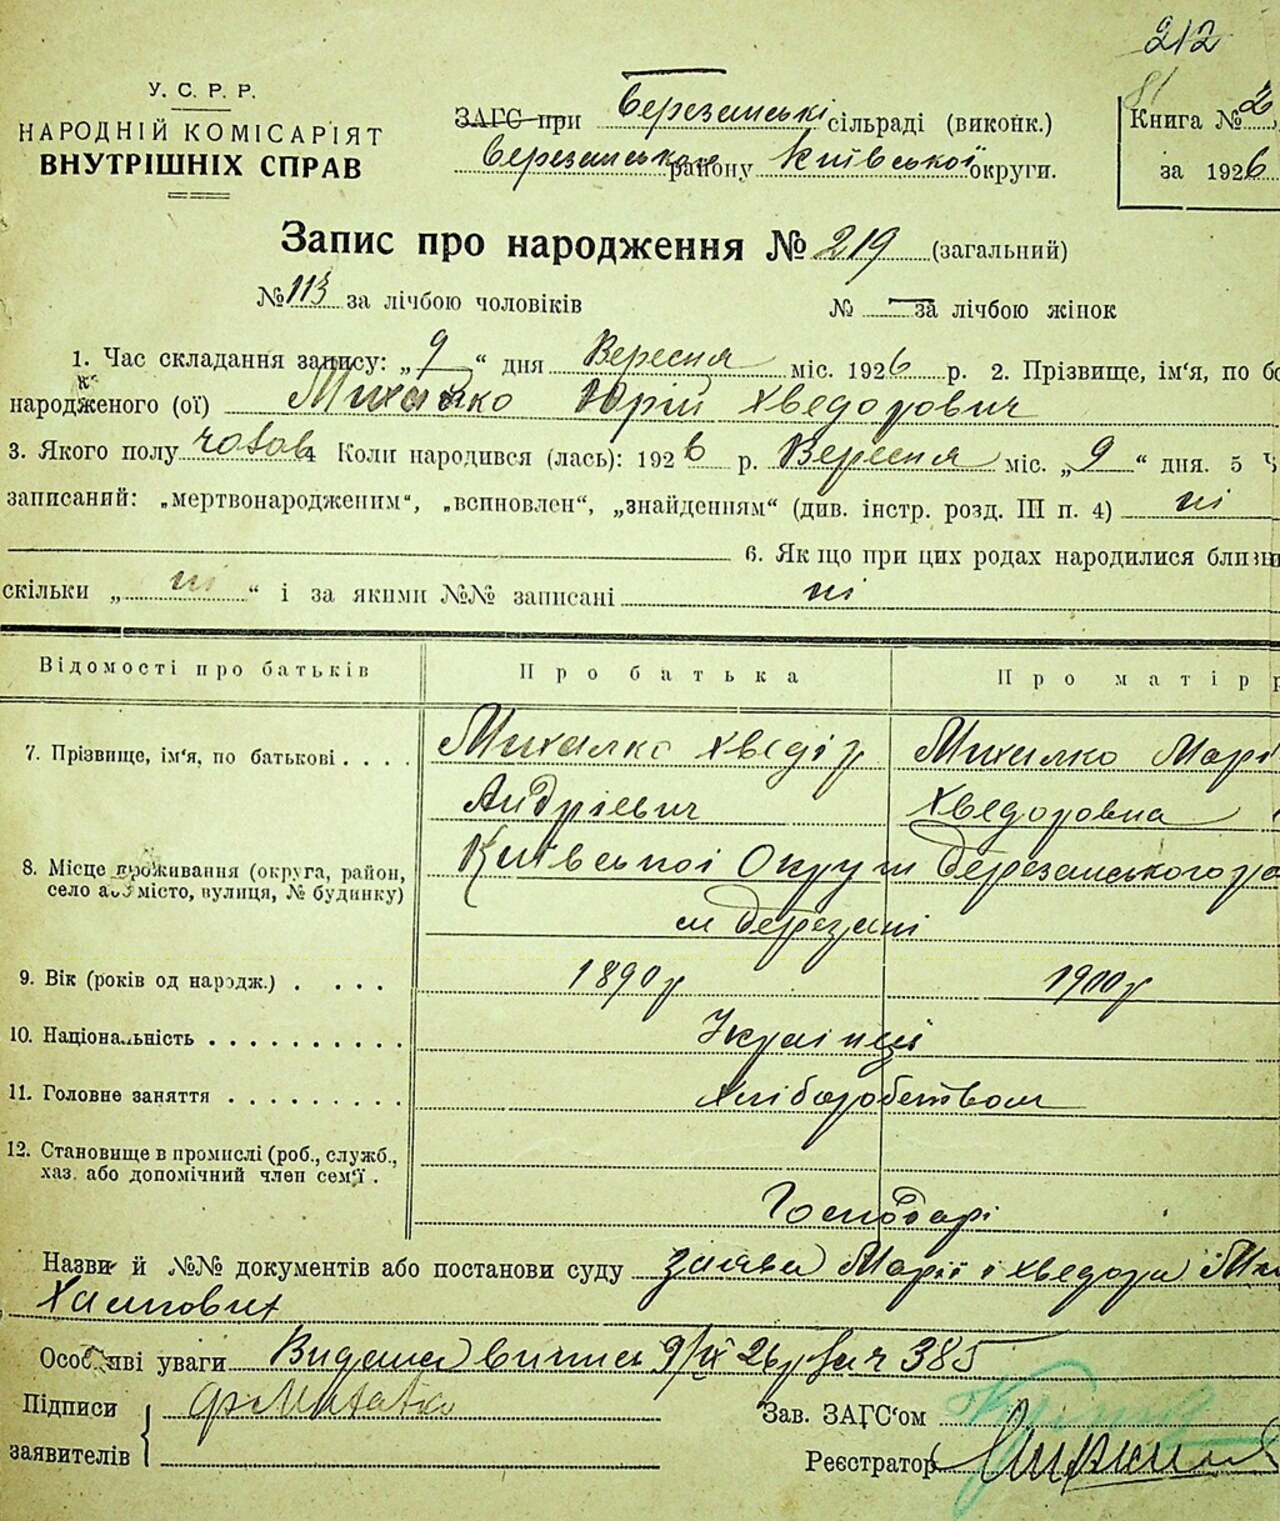 212
81
У. С. Р. Р.
НАРОДНІЙ КОМІСАРІЯТ
ВНУТРІШНІХ СПРАВ
ЗАГС при Березанські сільраді (виконк.)
Березанського району Київської округи.
Книга № 2
за 1926
Запис про народження № 219 (загальний)
№ 113 за лічбою чоловіків № — за лічбою жінок
1. Час складання запису: „ 9 “ дня Вересня міс. 1926 р. 2. Прізвище, ім‘я, по бо
народженого (ої) Михалко Юрій Хведорович
3. Якого полу чолов 4 Коли народився (лась): 1926 р. Вересня міс. „ 9 “ дня. 5 Ч
записаний: „мертвонародженим“, „всиновлен“, „знайденням“ (див. інстр. розд. III п. 4) ні
6. Як що при цих родах народилися близн
скільки „ ні “ і за якими №№ записані ні
Відомості про батьків Про батька Про матір
7. Прізвище, ім‘я, по батькові . . . . Михалко Хведір Михалко Марі
Андрієвич Хведоровна
8. Місце проживання (округа, район, Київської Округи Березанського ра
село або місто, вулиця, № будинку)
м Березані
9. Вік (років од народж.) . . . . 1890 р 1900 р
10. Національність . . . . . . . . . . Украінці
11. Головне заняття . . . . . . . . . Хліборобством
12. Становище в промислі (роб., служб.,
хаз. або допомічний член сем‘ї .
Господарі
Назви й №№ документів або постанови суду заява Марії і Хведора Ми
халкових
Особливі уваги Видана випис 9/IX 26 р за ч 385
Підписи Ф Михалко Зав. ЗАГС‘ом
заявителів Реєстратор